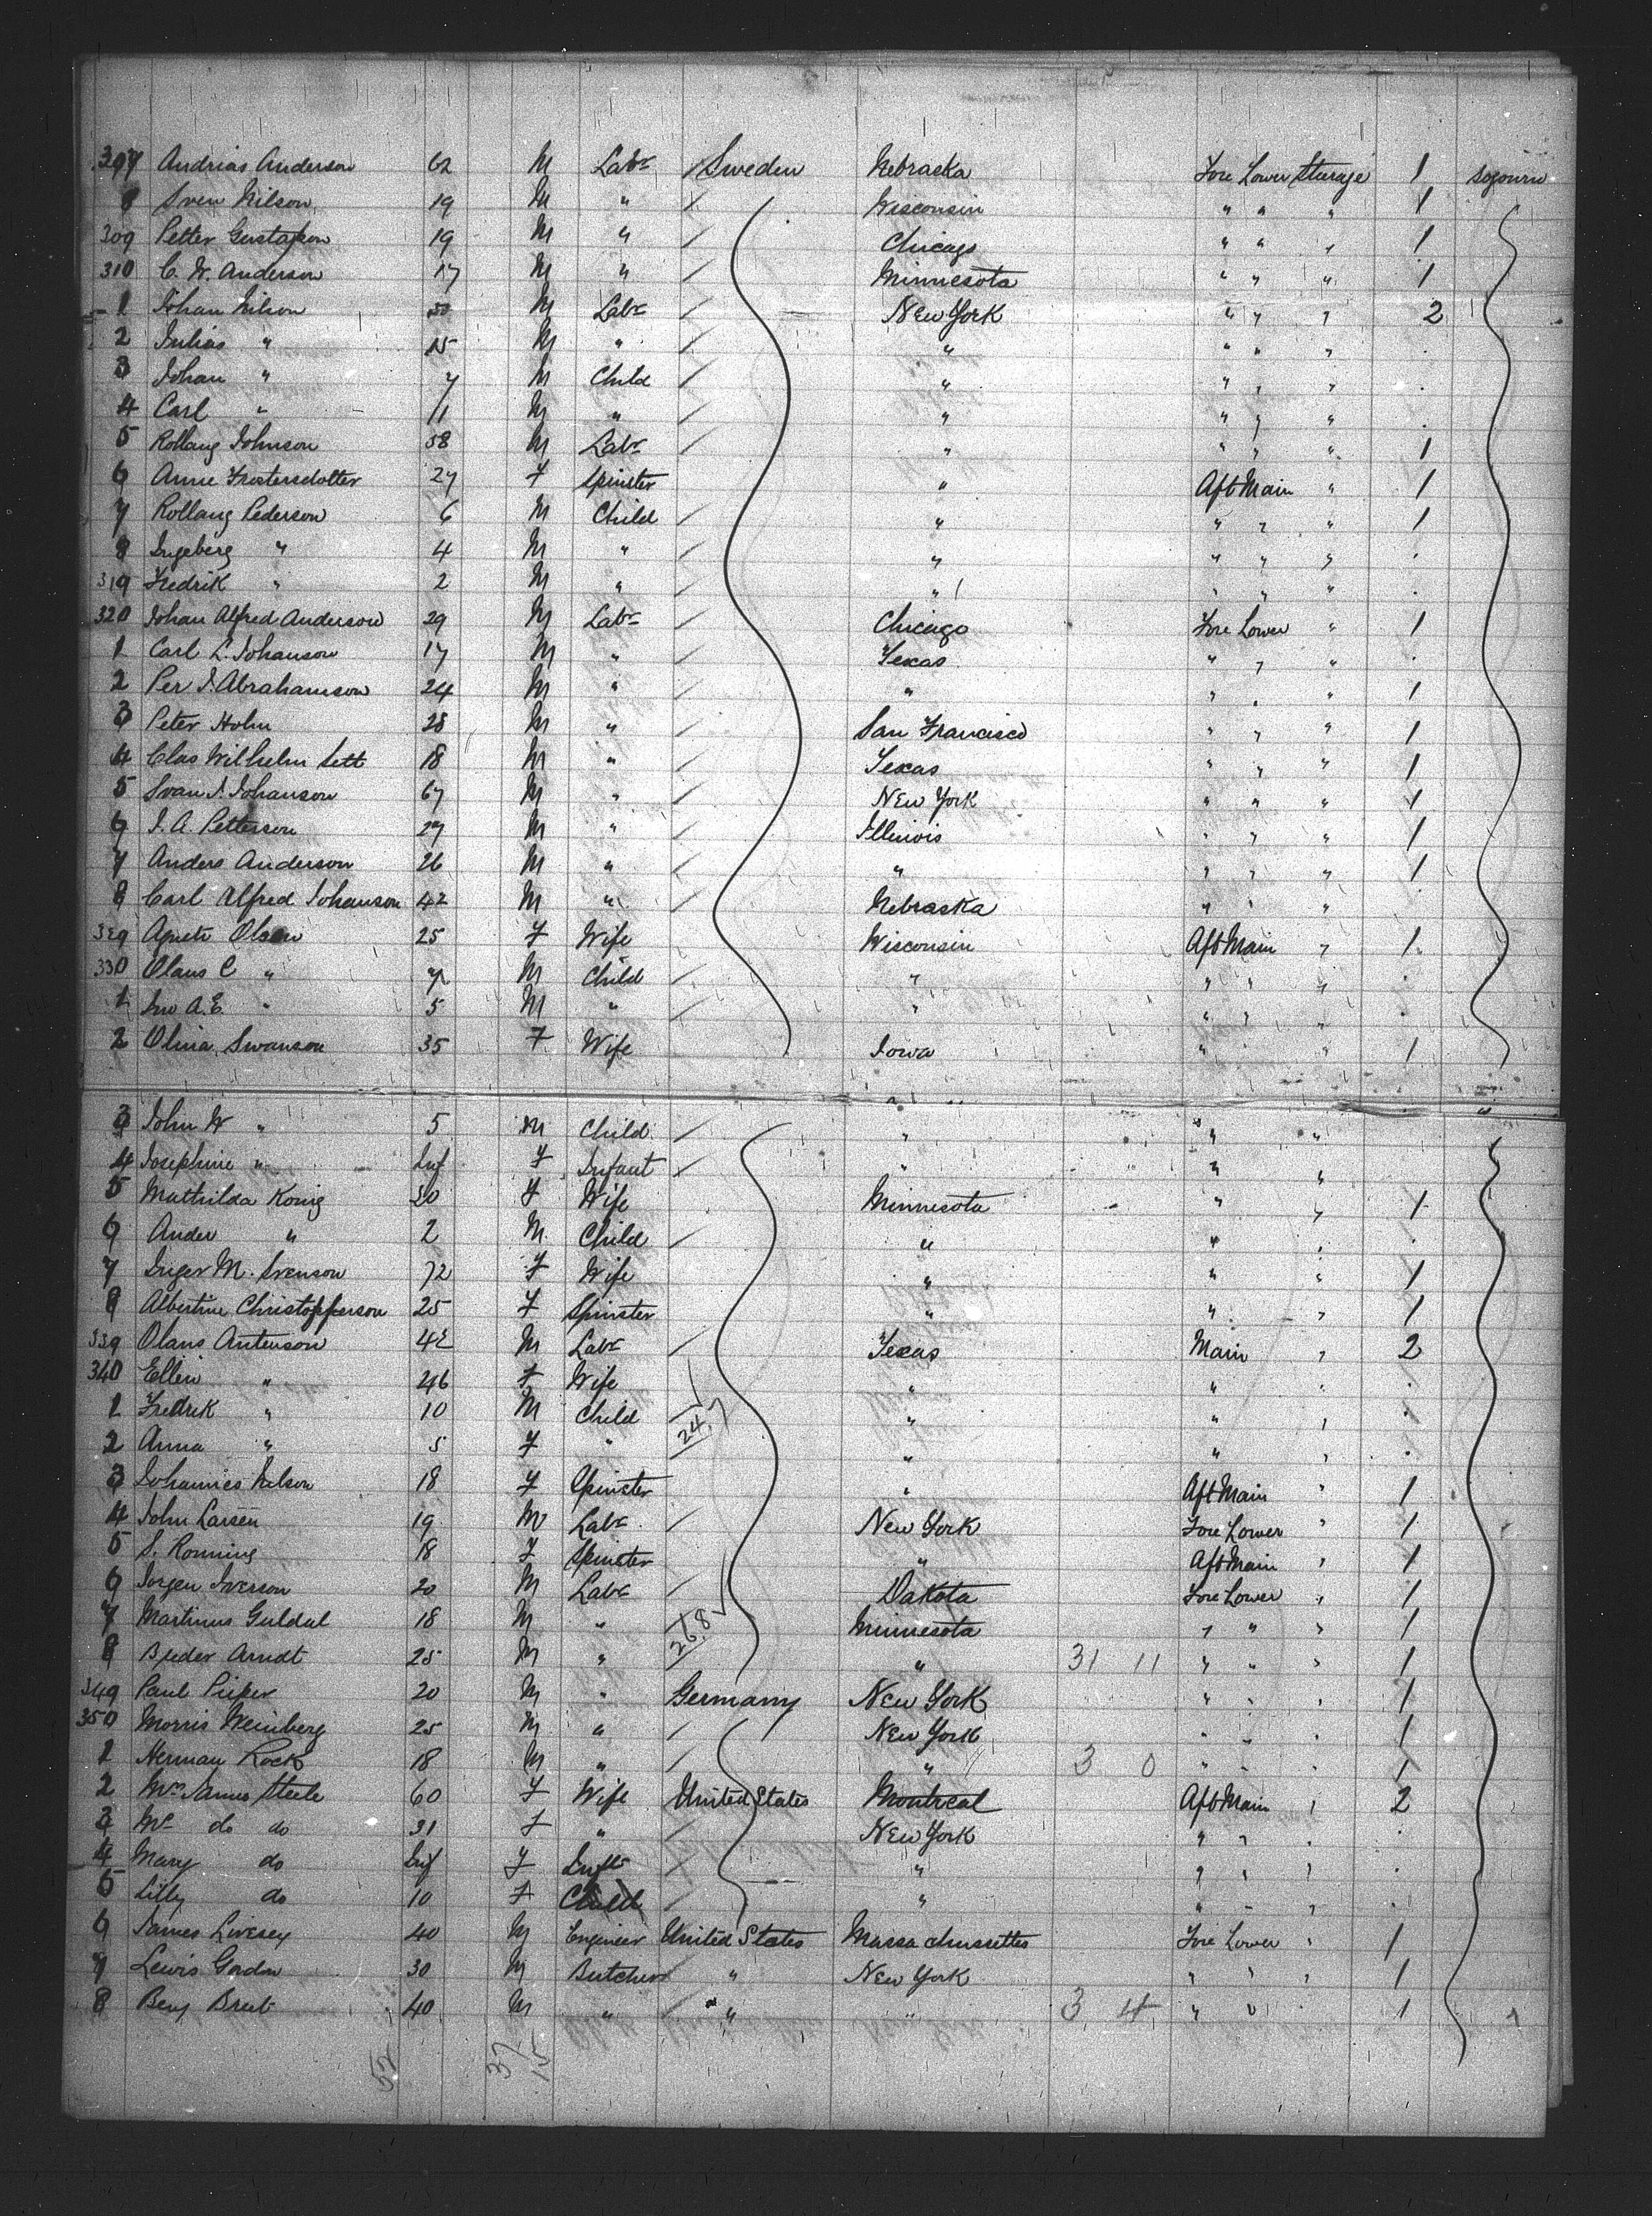 307 Andrias Anderson 62 M Labr / Sweden Nebraska Fore Lower Sturage 1 sojourn
8 Sven Nilson 19 M " / Wisconsin " " " 1
309 Petter Gustafson 19 M " / Chicago " " " 1
310 C. W. Anderson 17 M " / Minnesota " " " 1
1 Johan Nilson 50 M Labr / New York " " " 2
2 Julias " 15 M " / " " " " .
3 Johan " 7 M Child / " " " " .
4 Carl " 11 M " / " " " " .
5 Rollaug Johnson 58 M Labr / " " " " 1
6 Anne 27 F Spinster " Aft Main " 1
7 Rollaug Pederson 6 M Child / " " " " 1
8 Ingeberg " 4 M " / " " " " .
319 Fredrik " 2 M " / " " " " .
320 Johan Alfred Anderson 29 M Labr / Chicago Fore Lower " 1
1 Carl L. Johanson 17 M " / Texas " " " .
2 Per J. Abrahamson 24 M " / " " " " 1
3 Peter Holm 28 M " / San Francisco " " " 1
4 Clas Wilhelm Sett 18 M " / Texas " " " 1
5 Svan J. Johanson 67 M " / New York " " " 1
6 J. A. Petterson 27 M " / Illinois " " " 1
7 Anders Anderson 26 M " / " " " " 1
8 Carl Alfred Johanson 42 M " / Nebraska " " "
329 Olsen 25 F Wife Wisconsin Aft Main " 1
330 Olaus C " 7 M Child / " " " " .
1 A.E. " 5 M " / " " " " .
2 Olivia Swanson 35 F Wife Iowa " " " 1
3 John W " 5 M Child / " " "
4 Josephine " Inf F Infant / " " "
5 Mathilda Konig 30 F Wife Minnesota " " 1
6 Ander " 2 M Child / " " " .
7 Inger M. Svenson 72 F Wife " " " 1
8 Albertine Christopferson 25 F Spinster " " " 1
339 Olaus Antenson 42 M Labr / Texas Main " 2
340 Ellin " 46 F Wife " " " .
1 Fredrik " 10 M Child / " " " .
2 Anna " 5 F " 247 " " " .
3 Johannes Nelson 18 F Spinster " Aft Main " 1
4 John Larsen 19 M Labr / New York Fore Lower " 1
5 S. Ronning 18 F Spinster " Aft Main " 1
6 Jorgen Iverson 20 M Labr / Dakota Fore Lower " 1
7 Martinus Guldal 18 M " 268 Minnesota " " " 1
8 Arndt 25 M " " 31 11 " " " 1
349 Paul Pieper 20 M " Germany New York " " " 1
350 Morris Weinberg 25 M " / New York " " " 1
1 Herman Rock 18 M " / " 3 0 " " " 1
2 Mrs James Steele 60 F Wife United States Montreal Aft Main " 2
3 do do 31 F " / New York " " " .
4 Mary do Inf F Inft / " " " " .
5 Lilly do 10 F Child / " " " " .
6 James Livesey 40 M Engineer United States Massachussettes Fore Lower " 1
7 Lewis Gordon 30 M Butcher / " New York " " " 1
8 Benj 40 M " / " " 3 4 " " " 1
52 37 15